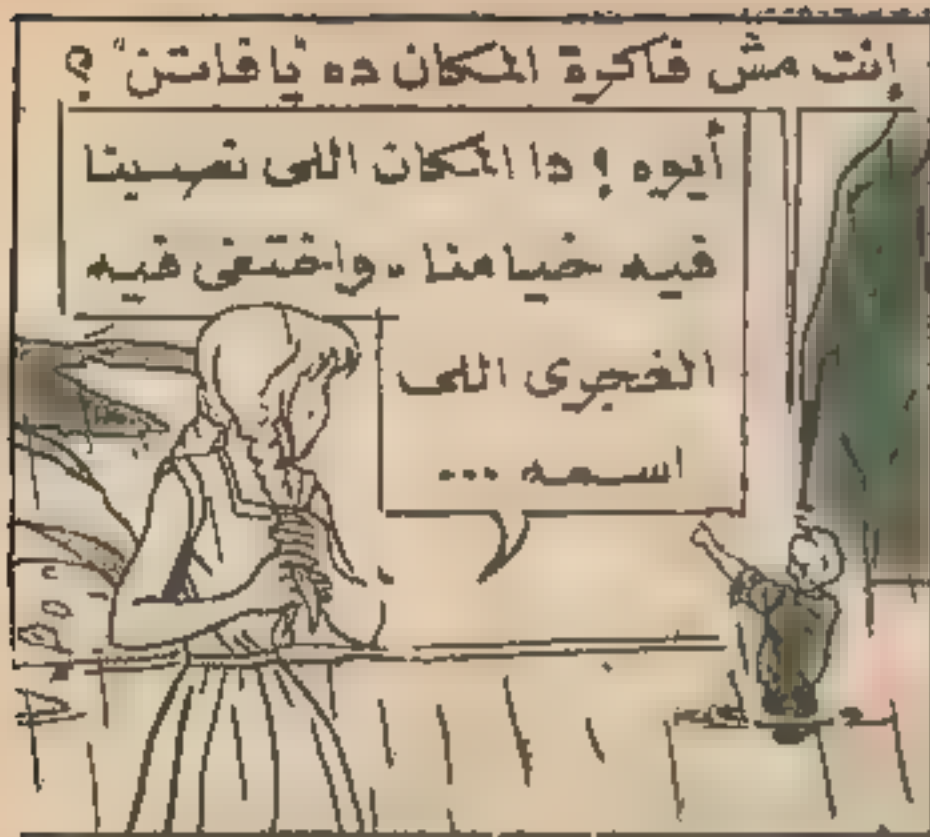 إنت مش فاكرة المكان ده "يا فاتن" ؟
أيوه ! دا المكان اللى نصبينا
فيه خيامنا . واختفى فيه
الغجرى اللى
اسمه ...